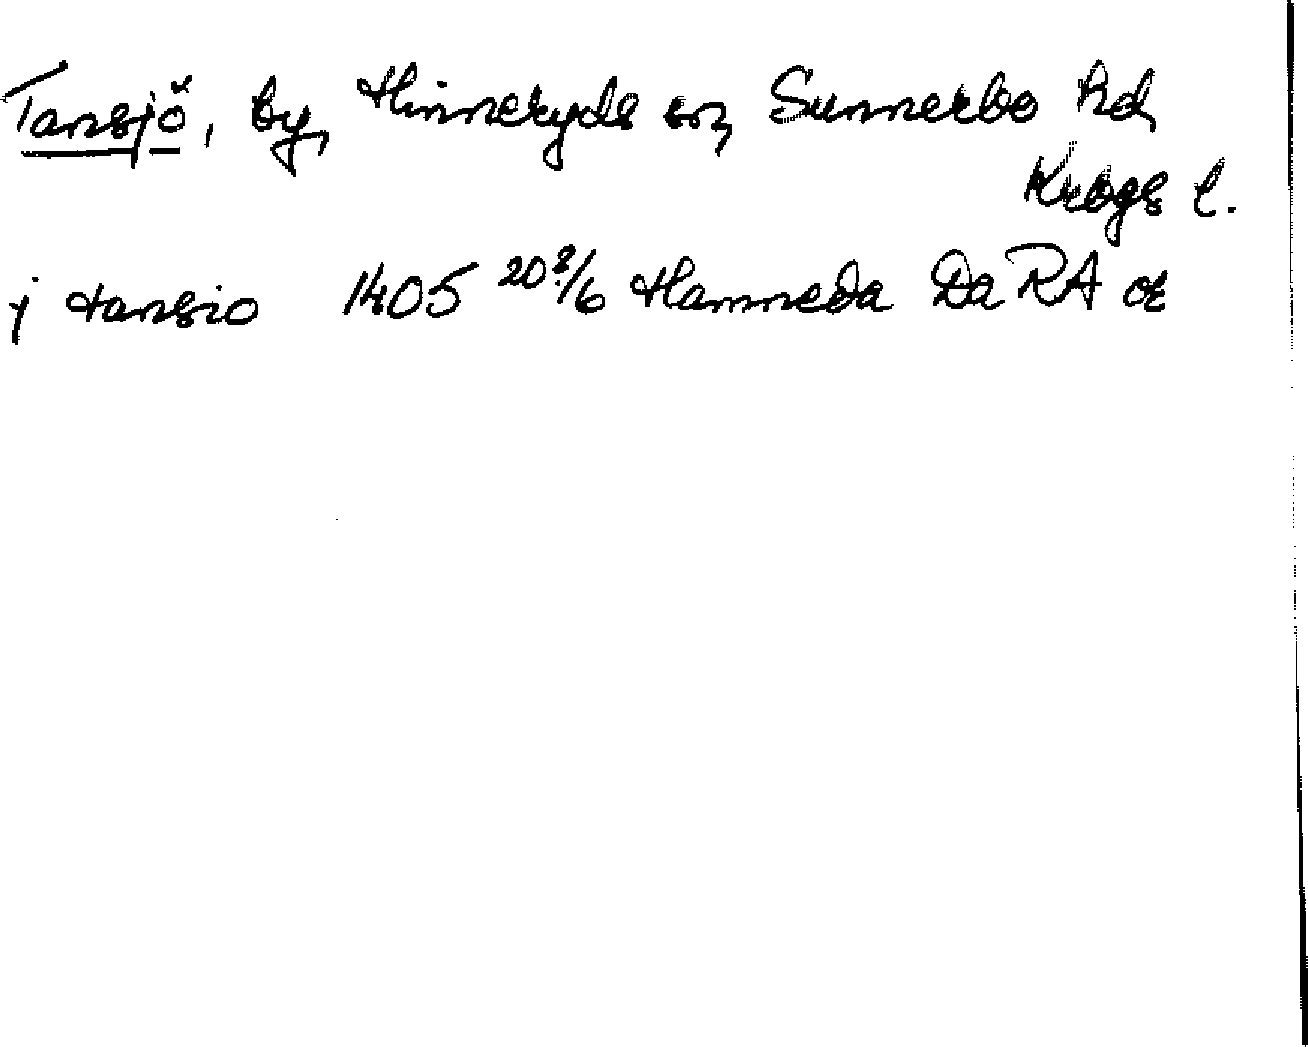 Tansjö, by, Hinneryds sn, Sunnerbo hd,
Krbgs l.
j tansio 1405 20?/6 Hamneda Da RA or